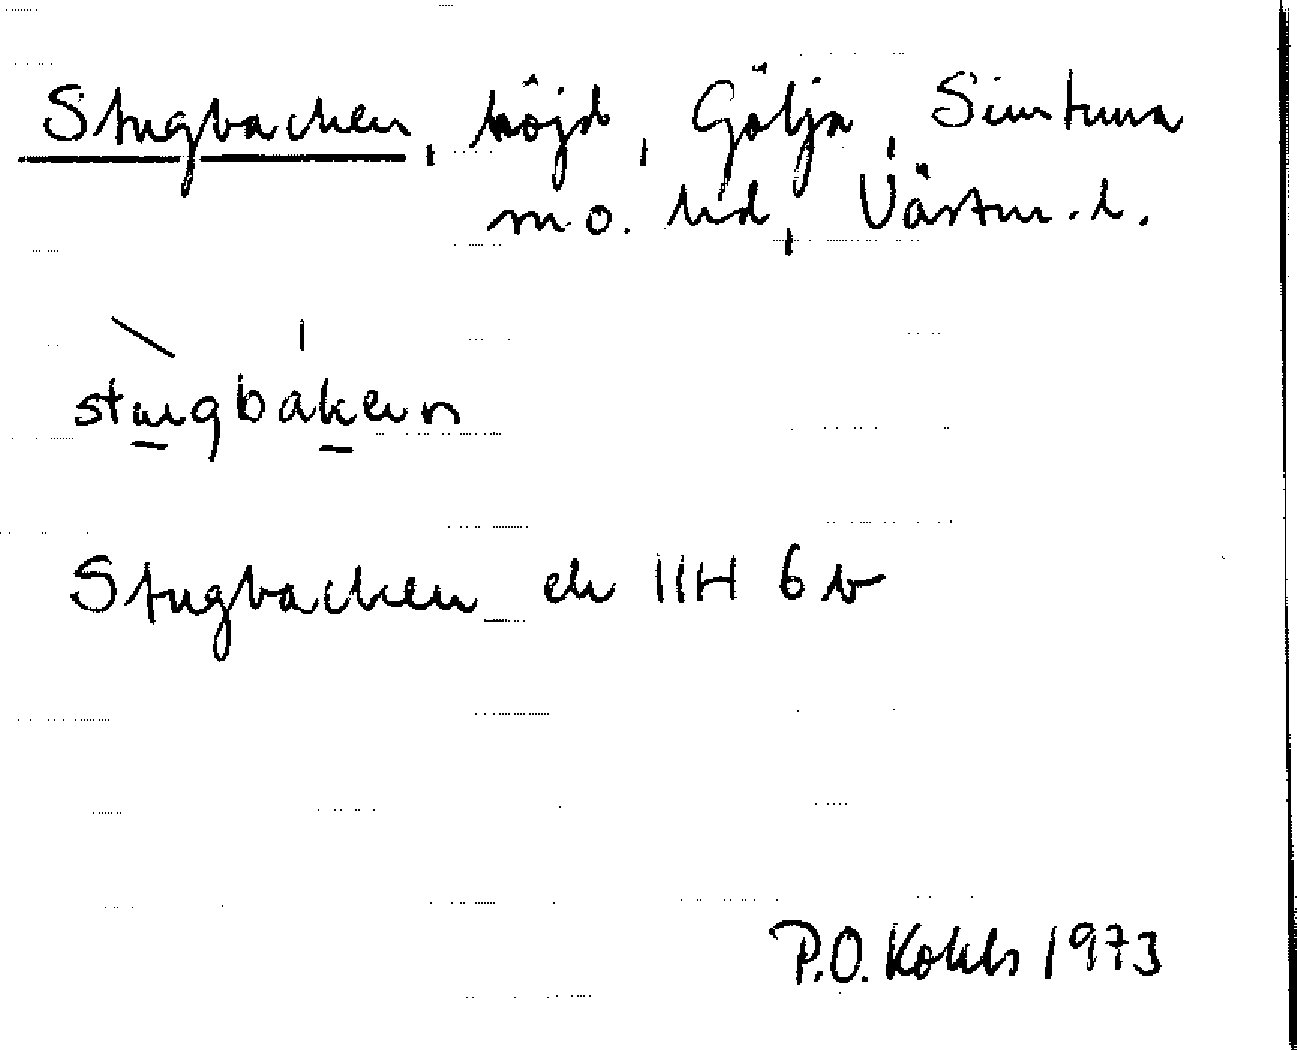 Stugbacken, höjd, Gölja, Simtuna
sn o. hd, Västm. l.
stugbaken
Stugbacken ek 11H 6 b
P.O. Kokk 1973